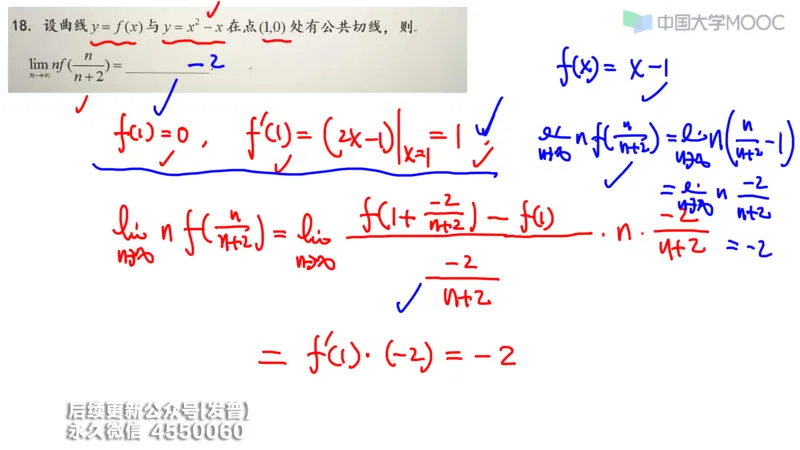 中国大学MOOC
18. 设曲线 y = f(x) 与 y = x² − x 在点 (1,0) 处有公共切线，则
lim n→∞ nf(n/(n+2)) = ________
−2
f(x) = x−1
f(1)=0 , f'(1) = (2x−1)|x=1 = 1
lim n→∞ n f(n/(n+2)) = lim n→∞ n(n/(n+2) −1)
= lim n→∞ n −2/(n+2)
= −2
lim n→∞ n f(n/(n+2)) = lim n→∞ (f(1+ −2/(n+2)) − f(1)) / (−2/(n+2)) · n · −2/(n+2)
= f'(1)·(−2) = −2
后续更新公众号[发普]
永久微信 4550060